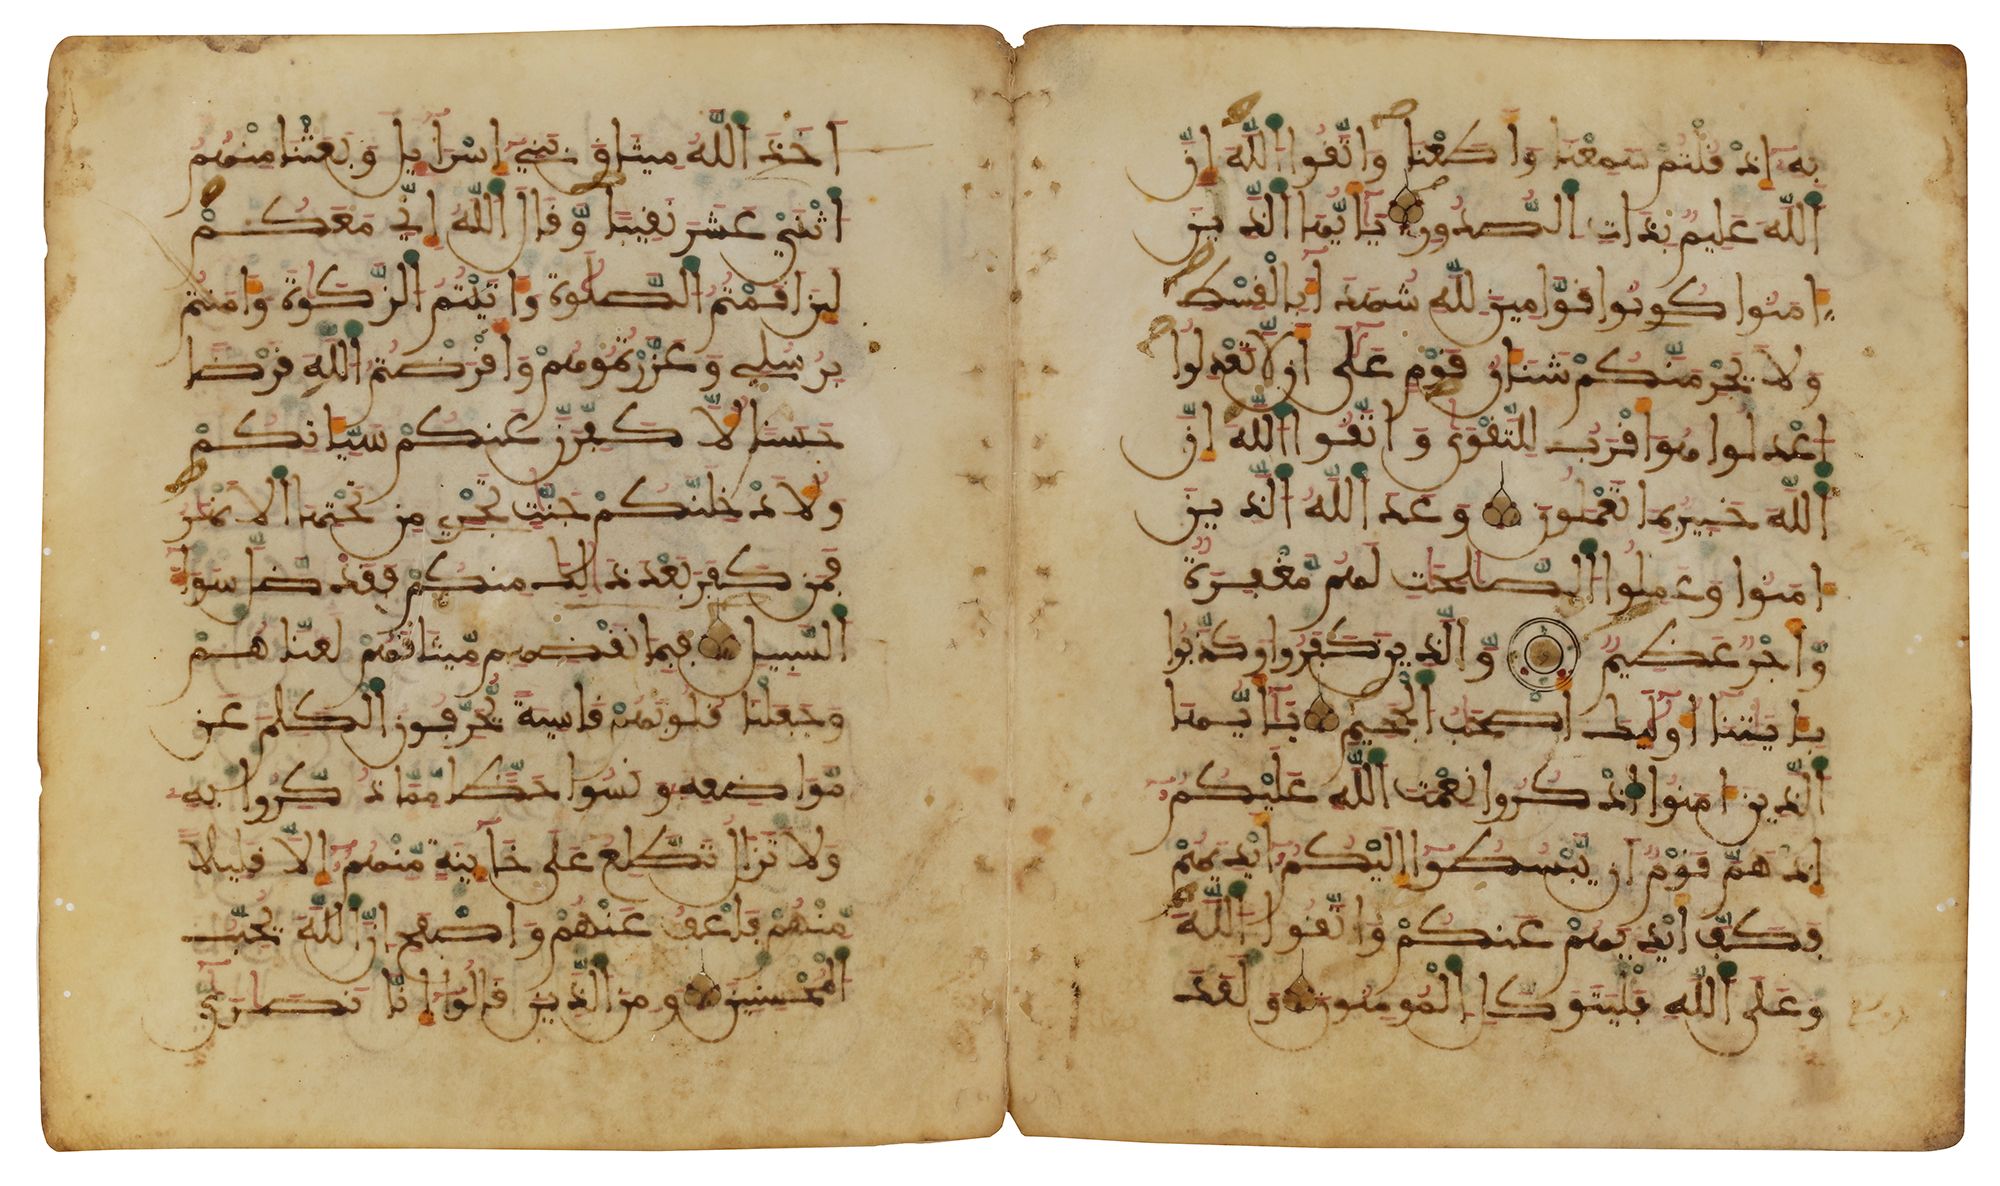 بِهِ إِذْ قُلْتُمْ سَمِعْنَا وَأَطَعْنَا وَاتَّقُوا اللَّهَ إِنَّ
اللَّهَ عَلِيمٌ بِذَاتِ الصُّدُورِ يَا أَيُّهَا الَّذِينَ
ءَامَنُوا كُونُوا قَوَّامِينَ لِلَّهِ شُهَدَآءَ بِالْقِسْطِ
وَلَا يَجْرِمَنَّكُمْ شَنَآنُ قَوْمٍ عَلَى أَن لَّا تَعْدِلُوا
اعْدِلُوا هُوَ أَقْرَبُ لِلتَّقْوَى وَاتَّقُوا اللَّهَ إِنَّ
اللَّهَ خَبِيرٌ بِمَا تَعْمَلُونَ وَعَدَ اللَّهُ الَّذِينَ
ءَامَنُوا وَعَمِلُوا الصَّالِحَاتِ لَهُم مَّغْفِرَةٌ
وَأَجْرٌ عَظِيمٌ وَالَّذِينَ كَفَرُوا وَكَذَّبُوا
بِآيَاتِنَا أُولَئِكَ أَصْحَابُ الْجَحِيمِ يَا أَيُّهَا
الَّذِينَ ءَامَنُوا اذْكُرُوا نِعْمَتَ اللَّهِ عَلَيْكُمْ
إِذْ هَمَّ قَوْمٌ أَن يَبْسُطُوا إِلَيْكُمْ أَيْدِيَهُمْ
فَكَفَّ أَيْدِيَهُمْ عَنكُمْ وَاتَّقُوا اللَّهَ
وَعَلَى اللَّهِ فَلْيَتَوَكَّلِ الْمُومِنُونَ وَلَقَدْ
أَخَذَ اللَّهُ مِيثَاقَ بَنِي إِسْرَآئِيلَ وَبَعَثْنَا مِنْهُمُ
اثْنَيْ عَشَرَ نَقِيبًا وَقَالَ اللَّهُ إِنِّي مَعَكُمْ
لَئِنْ أَقَمْتُمُ الصَّلَوةَ وَآتَيْتُمُ الزَّكَوةَ وَءَامَنتُم
بِرُسُلِي وَعَزَّرْتُمُوهُمْ وَأَقْرَضْتُمُ اللَّهَ قَرْضًا
حَسَنًا لَّأُكَفِّرَنَّ عَنكُمْ سَيِّئَاتِكُمْ
وَلَأُدْخِلَنَّكُمْ جَنَّاتٍ تَجْرِي مِن تَحْتِهَا الْأَنْهَارُ
فَمَن كَفَرَ بَعْدَ ذَلِكَ مِنكُمْ فَقَدْ ضَلَّ سَوَآءَ
السَّبِيلِ فَبِمَا نَقْضِهِم مِّيثَاقَهُمْ لَعَنَّاهُمْ
وَجَعَلْنَا قُلُوبَهُمْ قَاسِيَةً يُحَرِّفُونَ الْكَلِمَ عَن
مَّوَاضِعِهِ وَنَسُوا حَظًّا مِّمَّا ذُكِّرُوا بِهِ
وَلَا تَزَالُ تَطَّلِعُ عَلَى خَآئِنَةٍ مِّنْهُمْ إِلَّا قَلِيلًا
مِّنْهُمْ فَاعْفُ عَنْهُمْ وَاصْفَحْ إِنَّ اللَّهَ يُحِبُّ
الْمُحْسِنِينَ وَمِنَ الَّذِينَ قَالُوا إِنَّا نَصَارَى